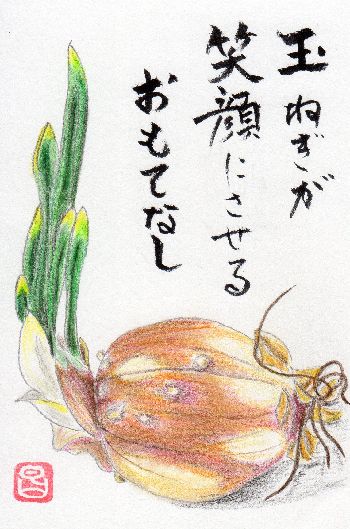 玉ねぎが
笑顔にさせる
おもてなし